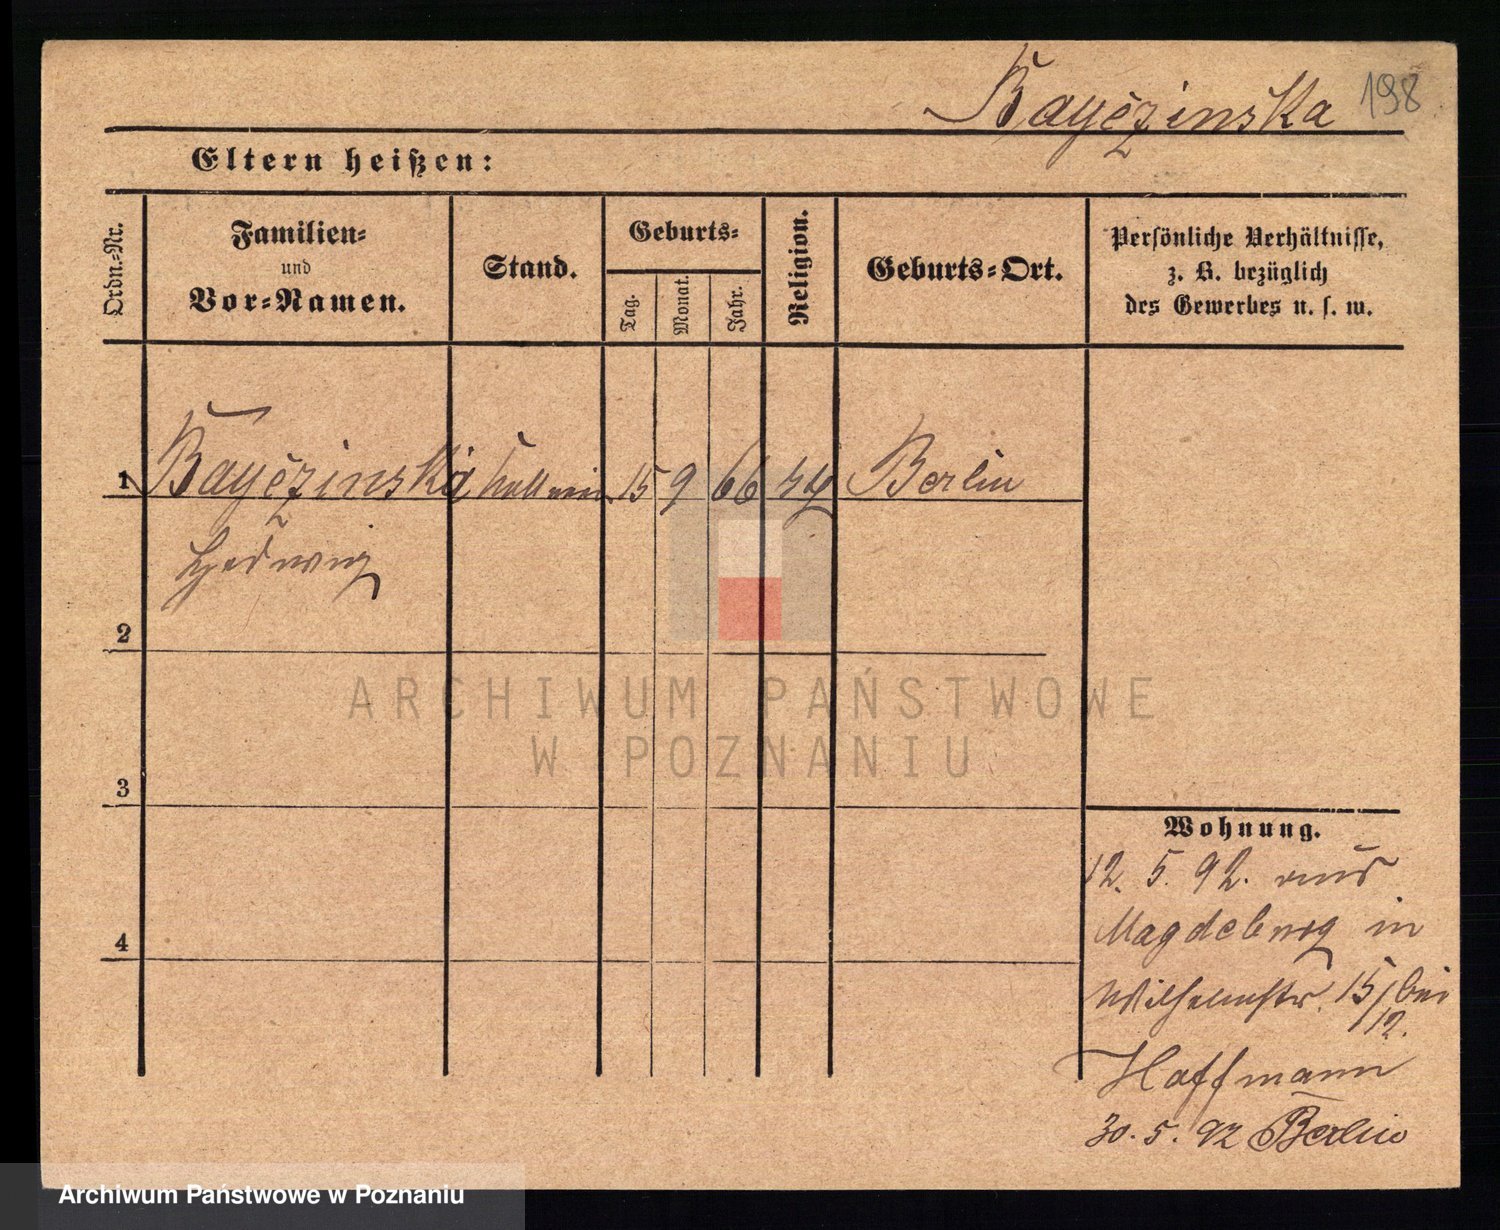 Bayĕzinska 198
Eltern heißen:
Ordn.-Nr.
Familien-
und
Vor-Namen.
Stand.
Geburts-
Tag.
Monat.
Jahr.
Religion.
Geburts-Ort.
Persönliche Verhältnisse,
z. B. bezüglich
des Gewerbes u. s. w.
1 Bayĕzinska 15 9 66 Berlin
Hedwig
2
3
4
Wohnung.
12. 5. 92. aus
Magdeburg in
Wilhelmstr. 15/ bei
12.
Hoffmann
30. 5. 92 Berlin
ARCHIWUM PAŃSTWOWE
W POZNANIU
Archiwum Państwowe w Poznaniu